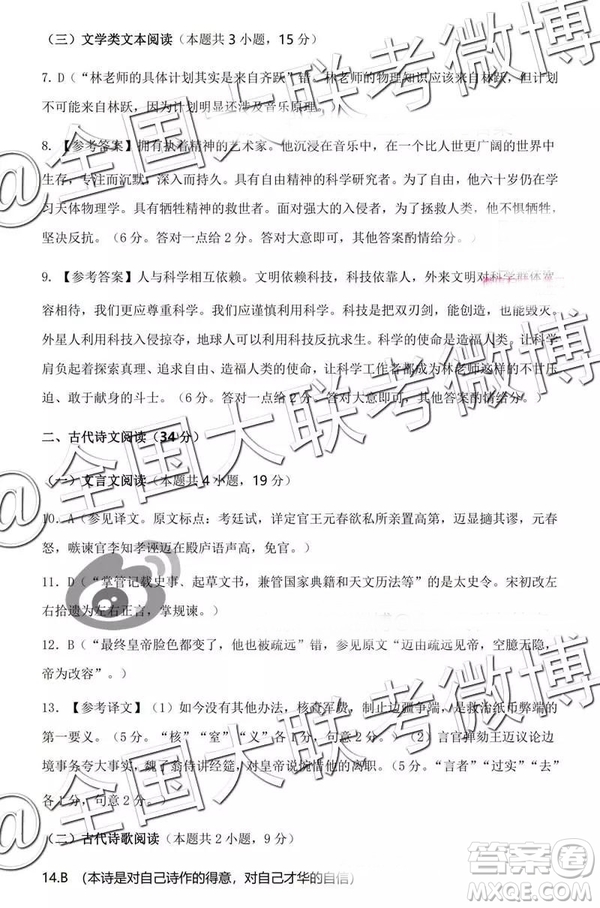 （三）文学类文本阅读（本题共 3 小题，15 分）
7. D（“林老师的具体计划其实是来自齐跃”错。林老师的物理知识应该来自林跃，但计划
不可能来自林跃，因为计划明显还涉及音乐原理。）
8. 【参考答案】拥有执着精神的艺术家。他沉浸在音乐中，在一个比人世更广阔的世界中
生存，专注而沉默，深入而持久。具有求真精神的科学研究者。为此，他六十岁仍在学
习天体物理学。具有牺牲精神的救世者。面对强大的入侵，为了拯救人类，他不惧牺牲，
坚决反抗。（6 分。答对一点给 2 分。答对大意即可，其他答案酌情给分。）
9. 【参考答案】人与科学相互依赖。文明依赖科技，科技依靠人，外来文明对科学家群体宽
容或优待，我们更应尊重科学。我们应谨慎利用科学。科技是把双刃剑，能创造，也能毁灭。
外星人可利用科技入侵掠夺，地球人可以利用科技反抗求生。科学的使命是造福人类。让科学
肩负起探索真理、造福人类的崇高使命，让科学工作者都成为林老师一样的不甘压
迫、敢于献身的斗士。（6 分。答对一点给 2 分。答对大意即可，其他答案酌情给分。）
二、古代诗文阅读（34 分）
（一）文言文阅读（本题共 4 小题，19 分）
10. A（参见译文。原文标点：考廷试，详定官王元春欲私所亲置高第，迈显擿其缪，元春
怒，嗾谏官李知孝诬迈在殿庐语声高，免官。）
11. D（“掌管记载史事、起草文书，兼管国家典籍和天文历法等”的是太史令。宋初改左
右拾遗为左右正言，掌规谏。）
12. B（“最终皇帝脸色都变了，他也被疏远”错，参见原文“迈由疏远见帝，空臆无隐，
帝为改容”。）
13. 【参考译文】（1）如今没有其他办法，核查军费，制止边疆争端，是救治纸币弊端的
第一要义。（5 分。“核”“窒”“义”各 1 分，句意 2 分。）（2）言官弹劾王迈议论边
境事务夸大事实，魏了翁侍讲经筵，对皇帝说可惜他的离职。（5 分。“言者”“过实”“去”
各 1 分，句意 2 分。）
（二）古代诗歌阅读（本题共 2 小题，9 分）
14.B （本诗是对自己诗作的得意，对自己才华的自信）
@全国大联考微博
@全国大联考微博
@全国大联考微博
答案圈